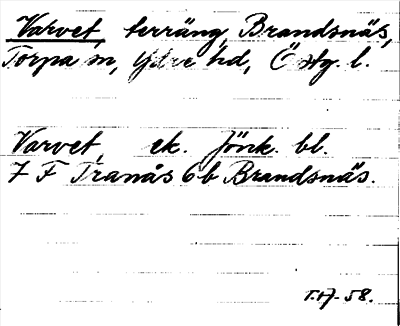 Varvet, terräng, Brandsnäs,
Torpa sn, Ydre hd, Östg. l.
Varvet, ek. Jönk. bl.
7 F Tranås 6 b Brandsnäs.
58.